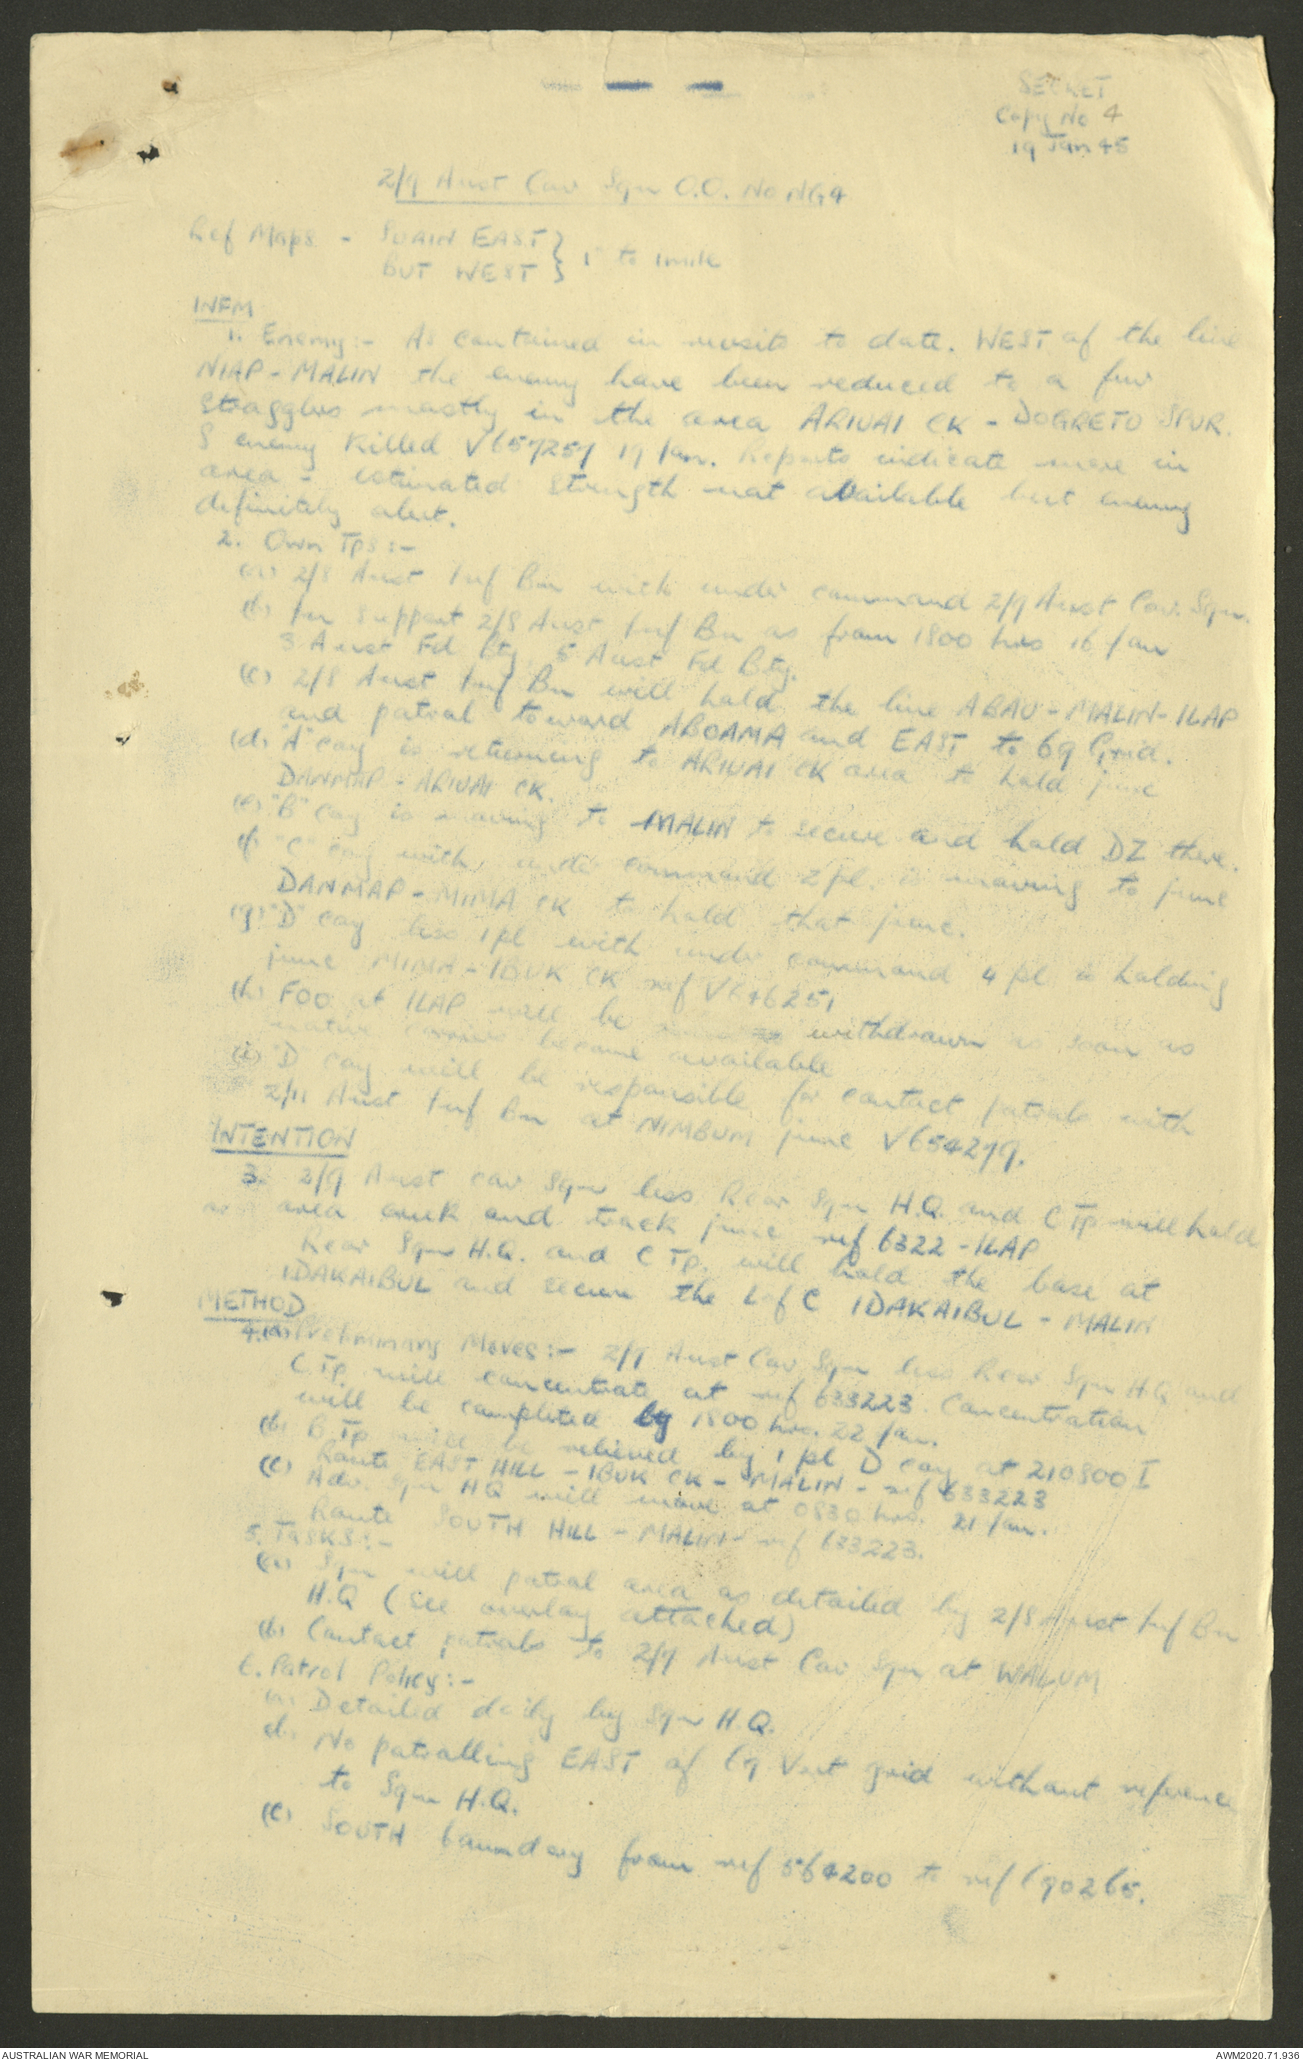 SECRET
Copy No 4
19 Jan 45
2/9 Aust Cav Sqn O.O. No NG4
Ref Maps - SUAIN EAST } 1" to 1 mile
BUT WEST }
INFM
1. Enemy:- As contained in to date. WEST of the line
NIAP - MALIN the enemy have been reduced to a few
stragglers mostly in the area ARIUAI CK - DOGRETO SPUR.
enemy killed V657257 19 Jan. Reports indicate more in
area - estimated strength not available but enemy
definitely alert.
2. Own Tps:-
(a) 2/8 Aust Inf Bn with under command 2/9 Aust Cav. Sqn.
(b) In support 2/8 Aust Inf Bn as from 1800 hrs 16 Jan
3 Aust Fd Bty, 5 Aust Fd Bty.
(c) 2/8 Aust Inf Bn will hold the line ABAU - MALIN - ILAP
and patrol toward ABOAMA and EAST to 69 Grid.
(d) "A" coy is returning to ARIUAI CK area to hold junc
DANMAP - ARIUAI CK.
(e) "B" coy is moving to MALIN to secure and hold DZ there.
(f) "C" coy with under command 2 pl. is moving to junc
DANMAP - MIMA CK to hold that junc.
(g) "D" coy less 1 pl with under command 4 pl is holding
junc MIMA - IBUK CK ref V646251
(h) FOO at ILAP will be withdrawn as soon as
native carriers become available
(i) "D" coy will be responsible for contact patrols with
2/11 Aust Inf Bn at NIMBUM junc V654279.
INTENTION
3. 2/9 Aust Cav Sqn less Rear Sqn H.Q. and C Tp will hold
area creek and track junc ref 6322 - ILAP
Rear Sqn H.Q. and C Tp. will hold the base at
IDAKAIBUL and secure the L of C IDAKAIBUL - MALIN
METHOD
4.(a) Preliminary Moves:- 2/9 Aust Cav Sqn less Rear Sqn H.Q and
C Tp. will concentrate at ref 633223. Concentration
will be completed by 1800 hrs. 22 Jan.
(b) B Tp will be relieved by 1 pl D coy at 210800 I
Route EAST HILL - IBUK CK - MALIN - ref 633223
(c) Adv Sqn HQ will move at 0830 hrs. 21 Jan.
Route SOUTH HILL - MALIN - ref 633223.
5. Tasks:-
(a) Sqn will patrol area as detailed by 2/8 Aust Inf Bn
H.Q (see overlay attached)
(b) Contact patrols to 2/9 Aust Cav Sqn at WALUM
6. Patrol Policy:-
(a) Detailed daily by Sqn H.Q.
(b) No patrolling EAST of 69 Vert grid without reference
to Sqn H.Q.
(c) SOUTH boundary from ref 564200 to ref 690265.
AUSTRALIAN WAR MEMORIAL
AWM2020.71.936